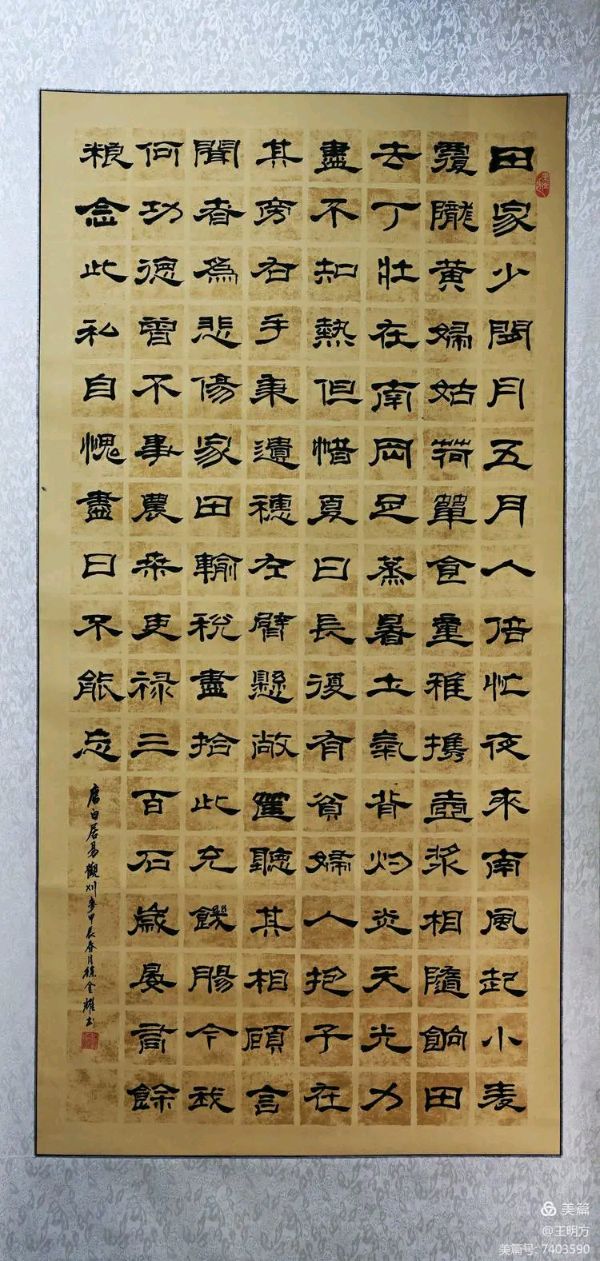 田家少閑月五月人倍忙夜來南風起小麦
覆隴黄婦姑荷簞食童稚携壺漿相隨餉田
去丁壯在南岡足蒸暑土氣背灼炎天光力
盡不知熱但惜夏日長復有貧婦人抱子在
其旁右手秉遺穗左臂懸敝筐聽其相顧言
聞者爲悲傷家田輸税盡拾此充饑腸今我
何功德曾不事農桑吏禄三百石歲晏有餘
粮念此私自愧盡日不能忘
唐白居易觀刈麥甲辰春月徐金耀书
美篇
@王明方
美篇号: 7403590